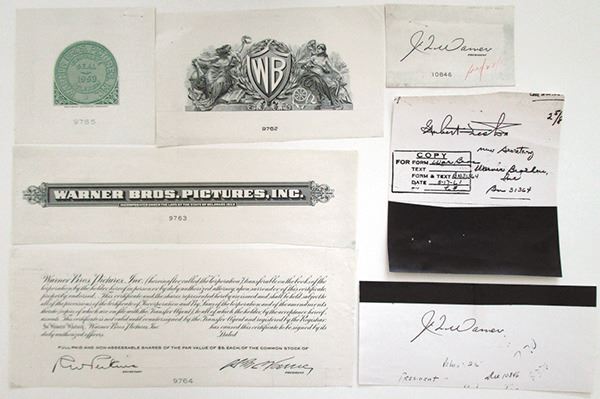 SEAL
9785
WB
9762
J L Warner
PRESIDENT
10846
WARNER BROS. PICTURES, INC.
INCORPORATED UNDER THE LAWS OF THE STATE OF DELAWARE 1923
9763
COPY
FOR FORM
TEXT
FORM & TEXT
DATE
new Secretary
Inc
Warner Bros. Pictures, Inc. (hereinafter called the Corporation) transferable on the books of the
Corporation by the holder hereof in person or by duly authorized attorney, upon surrender of this certificate
properly endorsed. This certificate and the shares represented hereby are issued and shall be held subject to
all of the provisions of the Certificate of Incorporation and By-Laws of the Corporation and of the amendments
thereto (copies of which are on file with the Transfer Agent), to all of which the holder, by the acceptance hereof,
assents. This certificate is not valid until countersigned by the Transfer Agent and registered by the Registrar.
In Witness Whereof, Warner Bros. Pictures, Inc. has caused this certificate to be signed by its
duly authorized officers. Dated
FULL-PAID AND NON-ASSESSABLE SHARES OF THE PAR VALUE OF $5. EACH, OF THE COMMON STOCK OF
R W Perkins
SECRETARY
PRESIDENT
9764
J L Warner
President
Die 10846